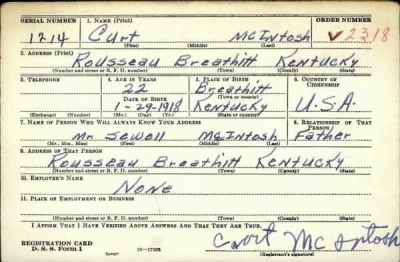 SERIAL NUMBER 1. NAME (Print) ORDER NUMBER
1214 Curt McIntosh V2318
(First) (Middle) (Last)
2. ADDRESS (Print)
Rousseau Breathitt Kentucky
(Number and street or R. F. D. number) (Town) (County) (State)
3. TELEPHONE 4. AGE IN YEARS 5. PLACE OF BIRTH 6. COUNTRY OF CITIZENSHIP
22 Breathitt
(Town or county)
DATE OF BIRTH
1-29-1918 Kentucky U.S.A.
(Exchange) (Number) (Mo.) (Day) (Yr.) (State or country)
7. NAME OF PERSON WHO WILL ALWAYS KNOW YOUR ADDRESS 8. RELATIONSHIP OF THAT PERSON
Mr Sewell McIntosh Father
(Mr., Mrs., Miss) (First) (Middle) (Last)
9. ADDRESS OF THAT PERSON
Rousseau Breathitt Kentucky
(Number and street or R. F. D. number) (Town) (County) (State)
10. EMPLOYER'S NAME
None
11. PLACE OF EMPLOYMENT OR BUSINESS
(Number and street or R. F. D. number) (Town) (County) (State)
I AFFIRM THAT I HAVE VERIFIED ABOVE ANSWERS AND THAT THEY ARE TRUE.
REGISTRATION CARD
D. S. S. Form 1 Curt McIntosh
(Registrant's signature)